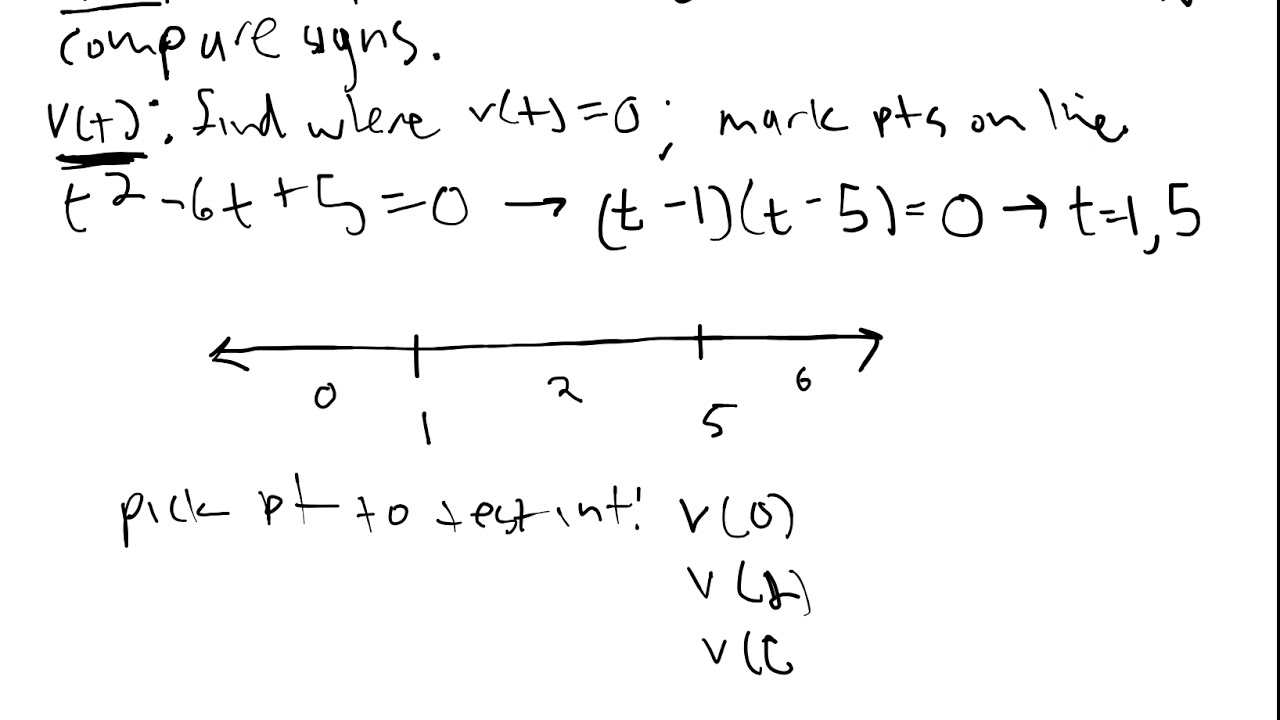 compare signs.
v(t): find where v(t)=0; mark pts on line
t²-6t+5=0 → (t-1)(t-5)=0 → t=1,5
0 2 6
1 5
pick pt to test int: v(0)
v(2)
v(